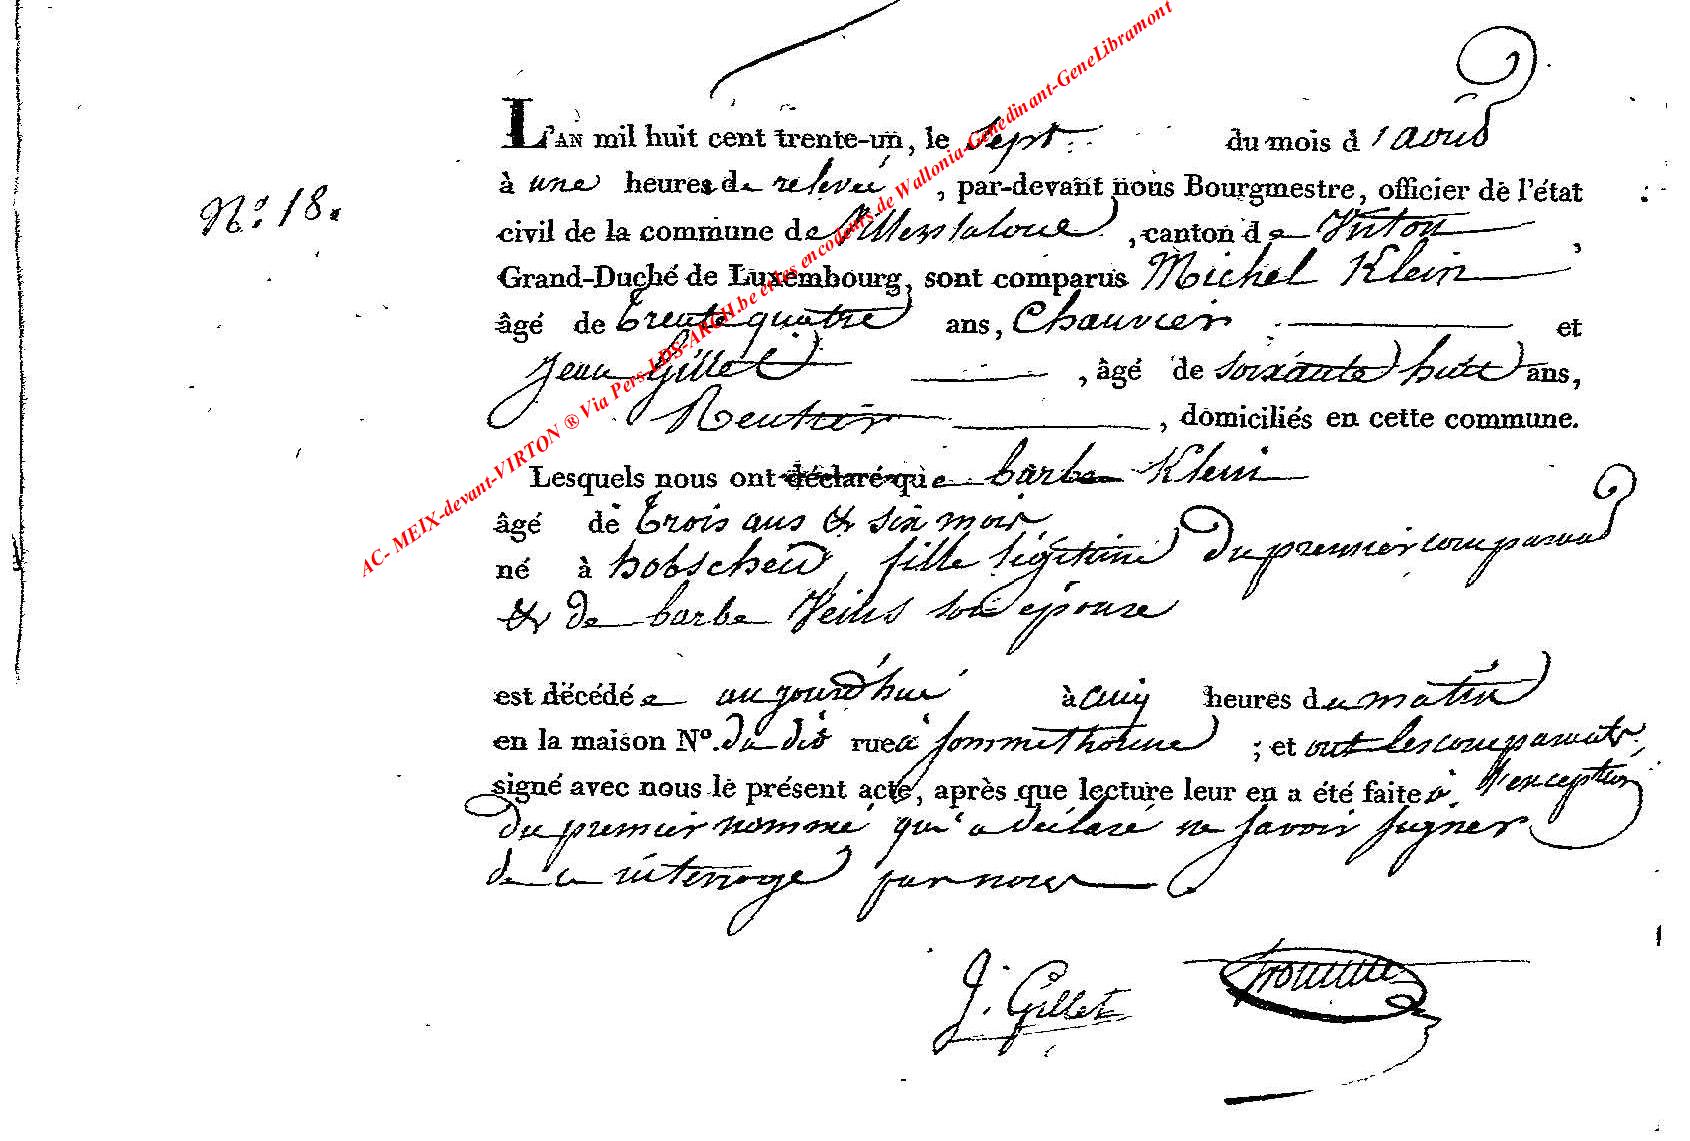 L'AN mil huit cent trente-un, le Sept du mois d'aout
à une heures de relevée, par-devant nous Bourgmestre, officier de l'état
N.° 18.
civil de la commune de Villerslaloue, canton de Virton,
Grand-Duché de Luxembourg, sont comparus Michel Klein
âgé de trente quatre ans, Chauvier et
Jean Gillet, âgé de soixante huit ans,
Rentier, domiciliés en cette commune.
Lesquels nous ont déclaré que barbe Klein
âgé de trois ans & six mois
né à hobscheid, fille légitime du premier comparant
& de barbe son épouse
est décédée aujourd'hui à cinq heures du matin
en la maison N°. du dit rue à Sommethonne; et ont les comparants
signé avec nous le présent acte, après que lecture leur en a été faite à l'exception
du premier nommé qui a déclaré ne savoir signer
de ce interrogé par nous
J. Gillet
AC- MEIX-devant-VIRTON ® Via Pers LDS-ARCH.be et les encodeurs de Wallonia-Genedinant-GeneLibramont